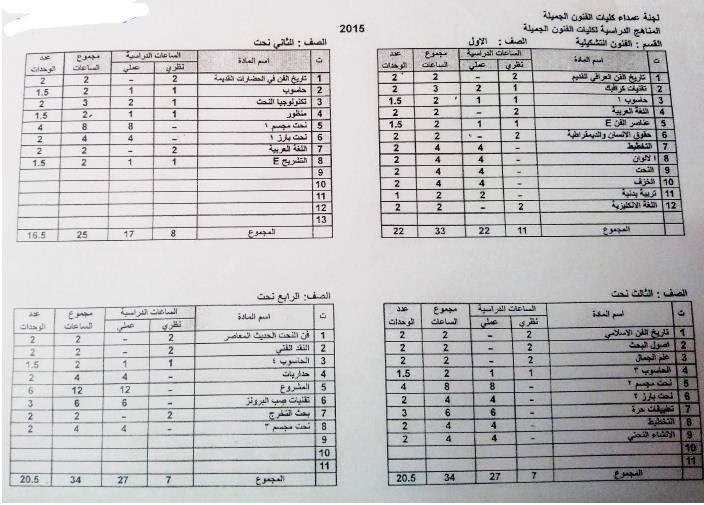 لجنة عمداء كليات الفنون الجميلة
المناهج الدراسية لكليات الفنون الجميلة
القسم : الفنون التشكيلية الصف : الاول
2015
ت اسم المادة الساعات الدراسية مجموع الساعات عدد الوحدات
نظري عملي
1 تاريخ الفن العراقي القديم 2 - 2 2
2 تقنيات كرافيك 1 2 3 2
3 حاسوب ١ 1 1 2 1.5
4 اللغة العربية 2 - 2 2
5 عناصر الفن E 1 1 2 1.5
6 حقوق الانسان والديمقراطية 2 - 2 2
7 التخطيط - 4 4 2
8 الالوان - 4 4 2
9 النحت - 4 4 2
10 الخزف - 4 4 2
11 تربية بدنية - 2 2 1
12 اللغة الانكليزية 2 - 2 2
المجموع 11 22 33 22
الصف : الثاني نحت
ت اسم المادة الساعات الدراسية مجموع الساعات عدد الوحدات
نظري عملي
1 تاريخ الفن في الحضارات القديمة 2 - 2 2
2 حاسوب 1 1 2 1.5
3 تكنولوجيا النحت 1 2 3 2
4 منظور 1 1 2 1.5
5 نحت مجسم ١ - 8 8 4
6 نحت بارز ١ - 4 4 2
7 اللغة العربية 2 - 2 2
8 التشريح E 1 1 2 1.5
9
10
11
12
13
المجموع 8 17 25 16.5
الصف : الثالث نحت
ت اسم المادة الساعات الدراسية مجموع الساعات عدد الوحدات
نظري عملي
1 تاريخ الفن الاسلامي 2 - 2 2
2 اصول البحث 2 - 2 2
3 علم الجمال 2 - 2 2
4 الحاسوب ٣ 1 1 2 1.5
5 نحت مجسم ٢ - 8 8 4
6 نحت بارز ٢ - 4 4 2
7 تطبيقات حرة - 6 6 3
8 التخطيط - 4 4 2
9 الانشاء النحتي - 4 4 2
10
11
المجموع 7 27 34 20.5
الصف : الرابع نحت
ت اسم المادة الساعات الدراسية مجموع الساعات عدد الوحدات
نظري عملي
1 فن النحت الحديث المعاصر 2 - 2 2
2 النقد الفني 2 - 2 2
3 الحاسوب ٤ 1 1 2 1.5
4 جداريات - 4 4 2
5 المشروع - 12 12 6
6 تقنيات صب البرونز - 6 6 3
7 بحث التخرج 2 - 2 2
8 نحت مجسم ٣ - 4 4 2
9
10
11
المجموع 7 27 34 20.5